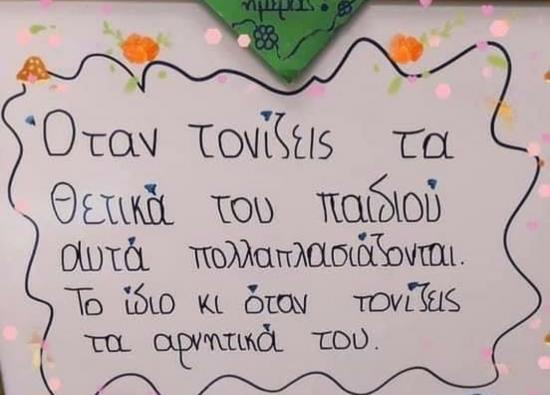 ημέρας:
Όταν τονίζεις τα
θετικά του παιδιού
αυτά πολλαπλασιάζονται.
Το ίδιο κι όταν τονίζεις
τα αρνητικά του.